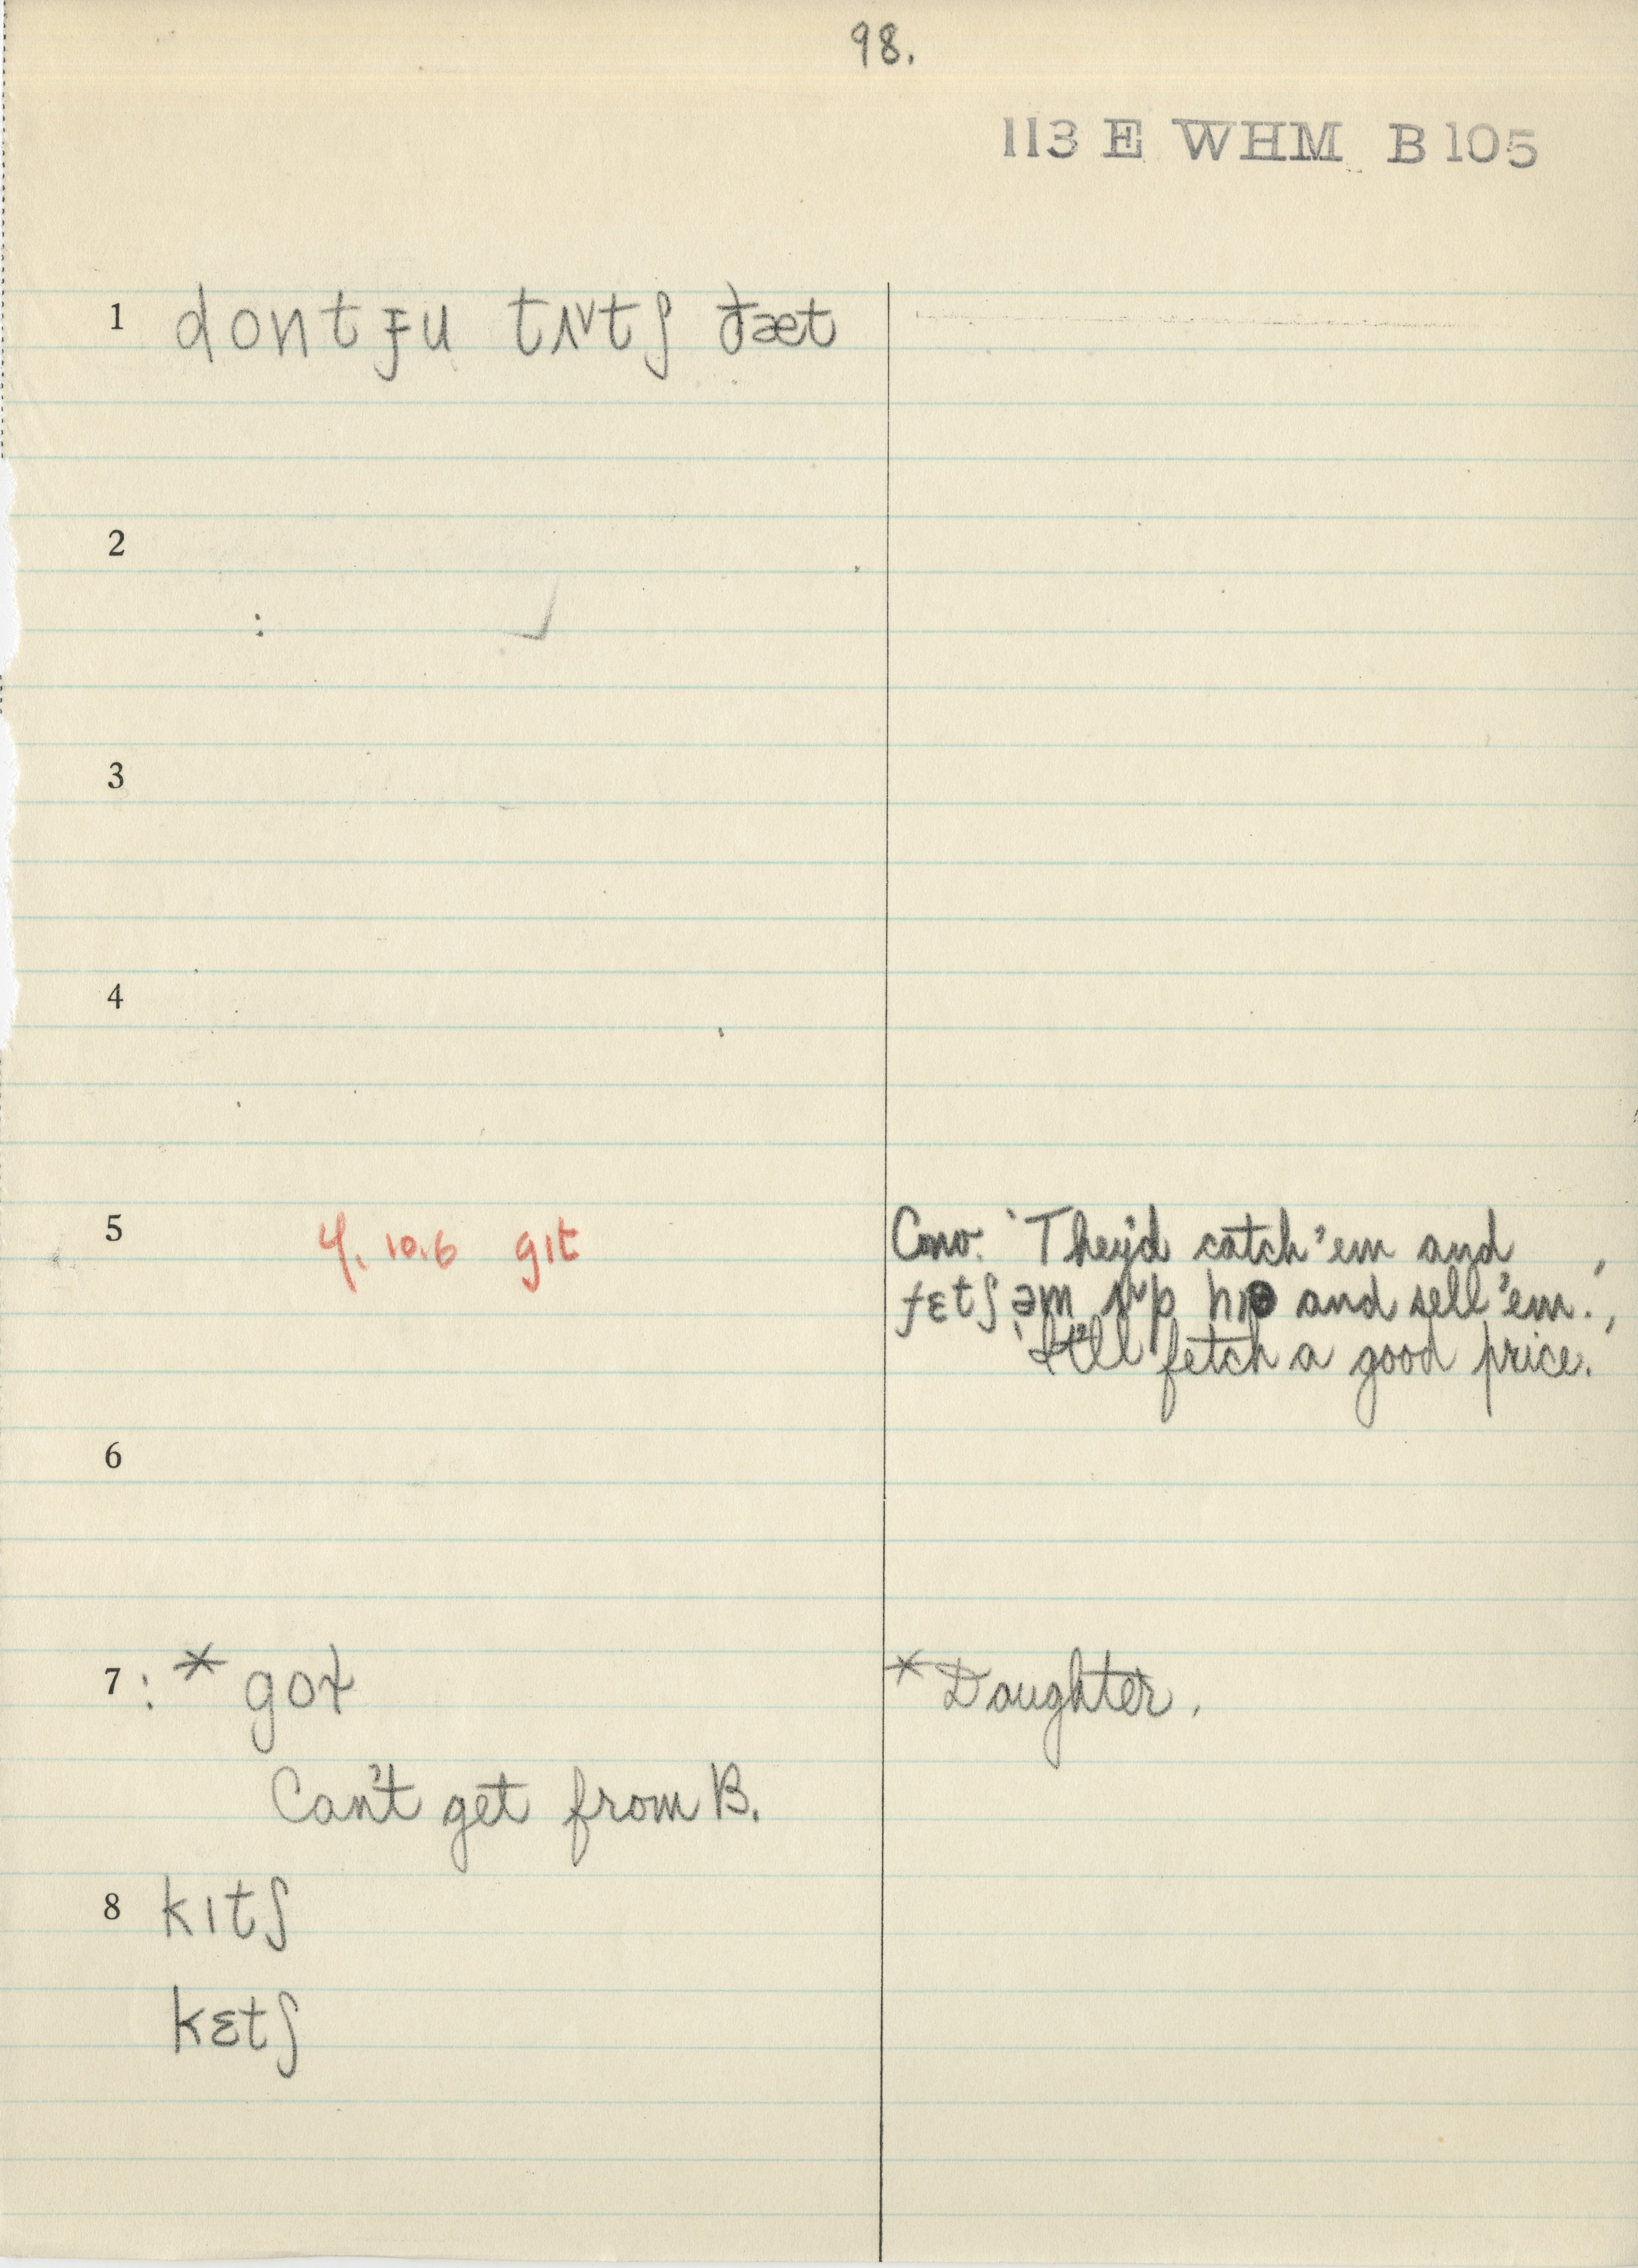 98.
113 E WHM B105
1 dont ɟu tʌᵛtʃ ðæt
2
:
3
4
5 4. 10.6 gɪt
Conv. 'They'd catch 'em and
fɛtʃ əm ʌᵛp and sell 'em.'
'It'll fetch a good price.'
6
7 : * gɑt
* Daughter.
Can't get from B.
8 kɪtʃ
kɛtʃ